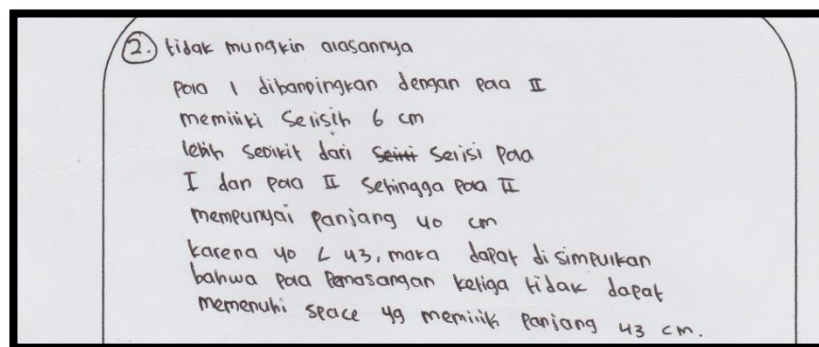 2. tidak mungkin alasannya
Pola 1 dibandingkan dengan Pola II
memiliki selisih 6 cm
lebih sedikit dari selisi Pola
I dan Pola II sehingga Pola II
mempunyai panjang 40 cm
karena 40 < 43, maka dapat disimpulkan
bahwa pola Pemasangan ketiga tidak dapat
memenuhi space yg memilik Panjang 43 cm.